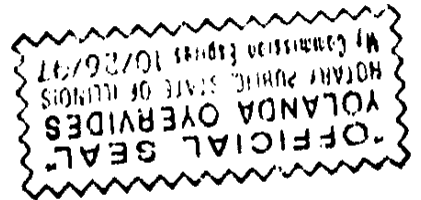 "OFFICIAL SEAL"
YOLANDA OYERVIDES
NOTARY PUBLIC, STATE OF ILLINOIS
My Commission Expires 10/26/97